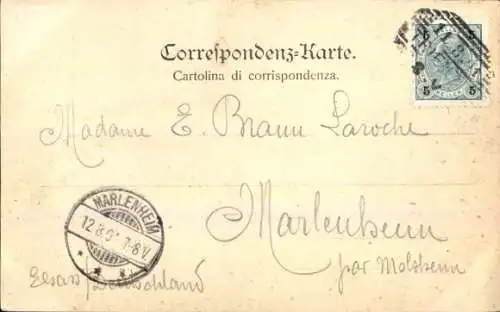 Correspondenz-Karte.
Cartolina di corrispondenza.
5 5
5 5
Madame E. Braun Laroche
Marlenheim
par Molsheim
Elsass/Deutschland
MARLENHEIM
12 8 0 7-8V.